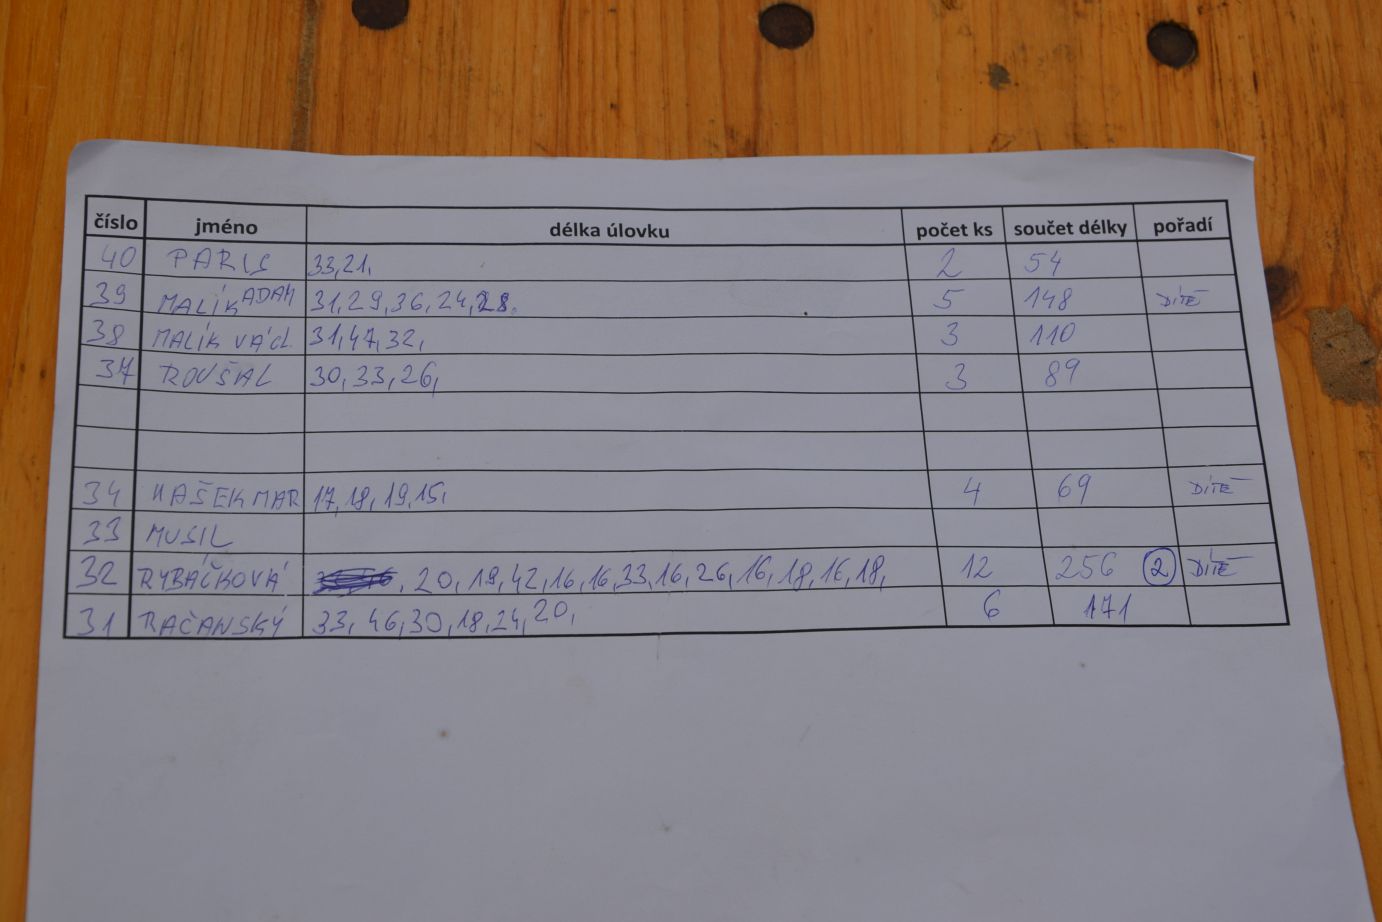 číslo jméno délka úlovku počet ks součet délky pořadí
40 PARIS 33,21, 2 54
39 MALÍK ADAM 31,29,36,24,28, 5 148 DÍTĚ
38 MALÍK VÁCL. 31,47,32, 3 110
37 ROUŠAL 30,33,26, 3 89
34 HAŠEK MAR 17,18,19,15, 4 69 DÍTĚ
33 MUSIL
32 RYBÁČKOVÁ , 20,19,42,16,16,33,16,26,16,18,16,18, 12 256 2 DÍTĚ
31 RAČANSKÝ 33,46,30,18,24,20, 6 171